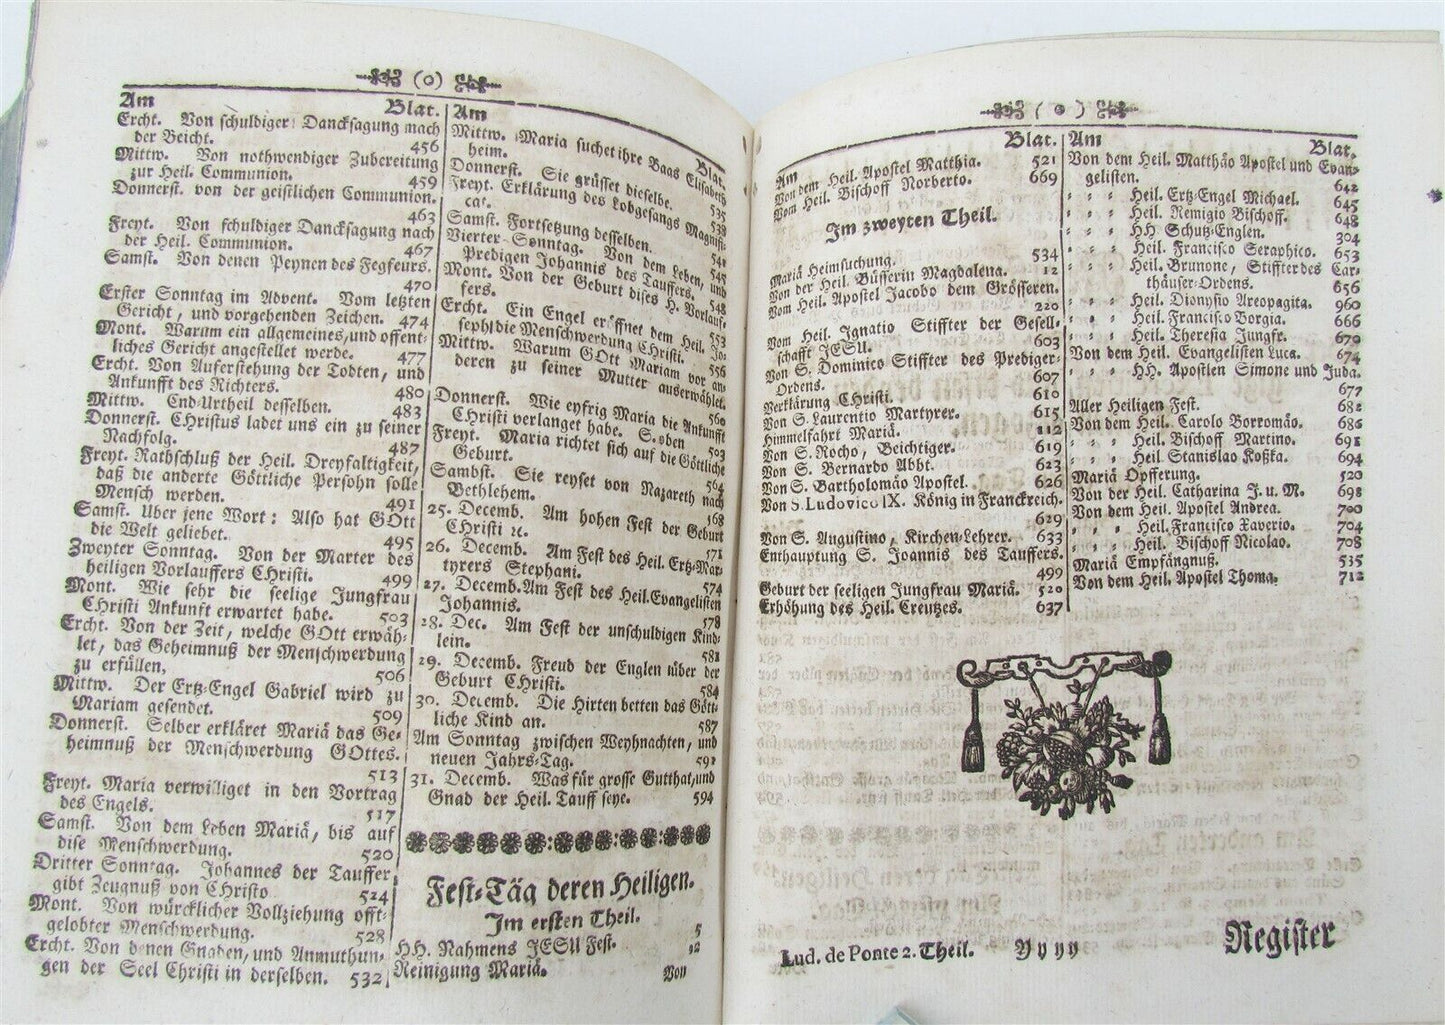 (o)
Am Blat.
Ercht. Von schuldiger Dancksagung nach
der Beicht. 456
Mittw. Von nothwendiger Zubereitung
zur Heil. Communion. 459
Donnerst. von der geistlichen Communion.
463
Freyt. Von schuldiger Dancksagung nach
der Heil. Communion. 467
Samst. Von denen Peynen des Fegfeurs.
470
Erster Sonntag im Advent. Vom letzten
Gericht, und vorgehenden Zeichen. 474
Mont. Warum ein allgemeines, und offent-
liches Gericht angestellet werde. 477
Ercht. Von Auferstehung der Todten, und
Ankunfft des Richters. 480
Mittw. End-Urtheil desselben. 483
Donnerst. CHristus ladet uns ein zu seiner
Nachfolg. 487
Freyt. Rathschluß der Heil. Dreyfaltigkeit,
daß die anderte Göttliche Persohn solle
Mensch werden. 491
Samst. Uber jene Wort: Also hat GOtt
die Welt geliebet. 495
Zweyter Sonntag. Von der Marter des
heiligen Vorlauffers CHristi. 499
Mont. Wie sehr die seelige Jungfrau
CHristi Ankunft erwartet habe. 503
Ercht. Von der Zeit, welche GOtt erwäh-
let, das Geheimnuß der Menschwerdung
zu erfüllen. 506
Mittw. Der Ertz-Engel Gabriel wird zu
Mariam gesendet. 509
Donnerst. Selber erkläret Mariä das Ge-
heimnuß der Menschwerdung GOttes.
513
Freyt. Maria verwilliget in den Vortrag
des Engels. 517
Samst. Von dem Leben Mariä, bis auf
dise Menschwerdung. 520
Dritter Sonntag. Johannes der Tauffer
gibt Zeugnuß von CHristo 524
Mont. Von würcklicher Vollziehung offt-
gelobter Menschwerdung. 528
Ercht. Von denen Gnaden, und Anmuthun-
gen der Seel Christi in derselben. 532
Am Blat.
Mittw. Maria suchet ihre Baas Elisabeth
heim. 535
Donnerst. Sie grüsset dieselbe. 538
Freyt. Erklärung des Lobgesangs Magnifi-
cat. 541
Samst. Fortsetzung desselben. 545
Vierter Sonntag. Von dem Leben, und
Predigen Johannis des Tauffers. 548
Mont. Von der Geburt dises H. Vorlauf-
fers. 553
Ercht. Ein Engel eröffnet dem Heil. Jo-
seph die Menschwerdung CHristi. 556
Mittw. Warum GOtt Mariam vor an-
deren zu seiner Mutter auserwählet.
560
Donnerst. Wie eyfrig Maria die Ankunfft
CHristi verlanget habe. S. oben 503
Freyt. Maria richtet sich auf die Göttliche
Geburt. 564
Sambst. Sie reyset von Nazareth nach
Bethlehem. 568
25. Decemb. Am hohen Fest der Geburt
CHristi ꝛc. 571
26. Decemb. Am Fest des Heil. Ertz-Mar-
tyrers Stephani. 574
27. Decemb. Am Fest des Heil. Evangelisten
Johannis. 578
28. Dec. Am Fest der unschuldigen Kind-
lein. 581
29. Decemb. Freud der Englen über der
Geburt CHristi. 584
30. Decemb. Die Hirten betten das Gött-
liche Kind an. 587
Am Sonntag zwischen Weyhnachten, und
neuen Jahrs-Tag. 591
31. Decemb. Was für grosse Gutthat, und
Gnad der Heil. Tauff seye. 594
Fest-Täg deren Heiligen.
Im ersten Theil.
H.H. Nahmens JESU Fest. 5
Reinigung Mariä. 12
Von
(o)
Am Blat.
Von dem Heil. Apostel Matthia. 521
Vom Heil. Bischoff Norberto. 669
Im zweyten Theil.
Mariä Heimsuchung. 534
Von der Heil. Büsserin Magdalena. 12
Vom Heil. Apostel Jacobo dem Grösseren.
220
Vom Heil. Ignatio Stiffter der Gesell-
schafft JESU. 603
Von S. Dominico Stiffter des Prediger-
Ordens. 607
Verklärung CHristi. 610
Von S. Laurentio Martyrer. 615
Himmelfahrt Mariä. 112
Von S. Rocho, Beichtiger. 619
Von S. Bernardo Abbt. 623
Von S. Bartholomäo Apostel. 626
Von S. Ludovico IX. König in Franckreich.
629
Von S. Augustino, Kirchen-Lehrer. 633
Enthauptung S. Joannis des Tauffers.
499
Geburt der seeligen Jungfrau Mariä. 520
Erhöhung des Heil. Creutzes. 637
Am Blat.
Von dem Heil. Matthäo Apostel und Evan-
gelisten. 642
Heil. Ertz-Engel Michael. 645
Heil. Remigio Bischoff. 648
HH. Schutz-Englen. 304
Heil. Francisco Seraphico. 653
Heil. Brunone, Stiffter des Car-
thäuser-Ordens. 656
Heil. Dionysio Areopagita. 960
Heil. Francisco Borgia. 666
Heil. Theresia Jungfr. 670
Von dem Heil. Evangelisten Luca. 674
HH. Apostlen Simone und Juda.
677
Aller Heiligen Fest. 682
Von dem Heil. Carolo Borromäo. 686
Heil. Bischoff Martino. 691
Heil. Stanislao Koßka. 694
Mariä Opfferung. 520
Von der Heil. Catharina J. u. M. 698
Von dem Heil. Apostel Andrea. 700
Heil. Francisco Xaverio. 704
Heil. Bischoff Nicolao. 708
Mariä Empfängnuß. 535
Von dem Heil. Apostel Thoma. 712
Lud. de Ponte 2. Theil. Yyyy Register